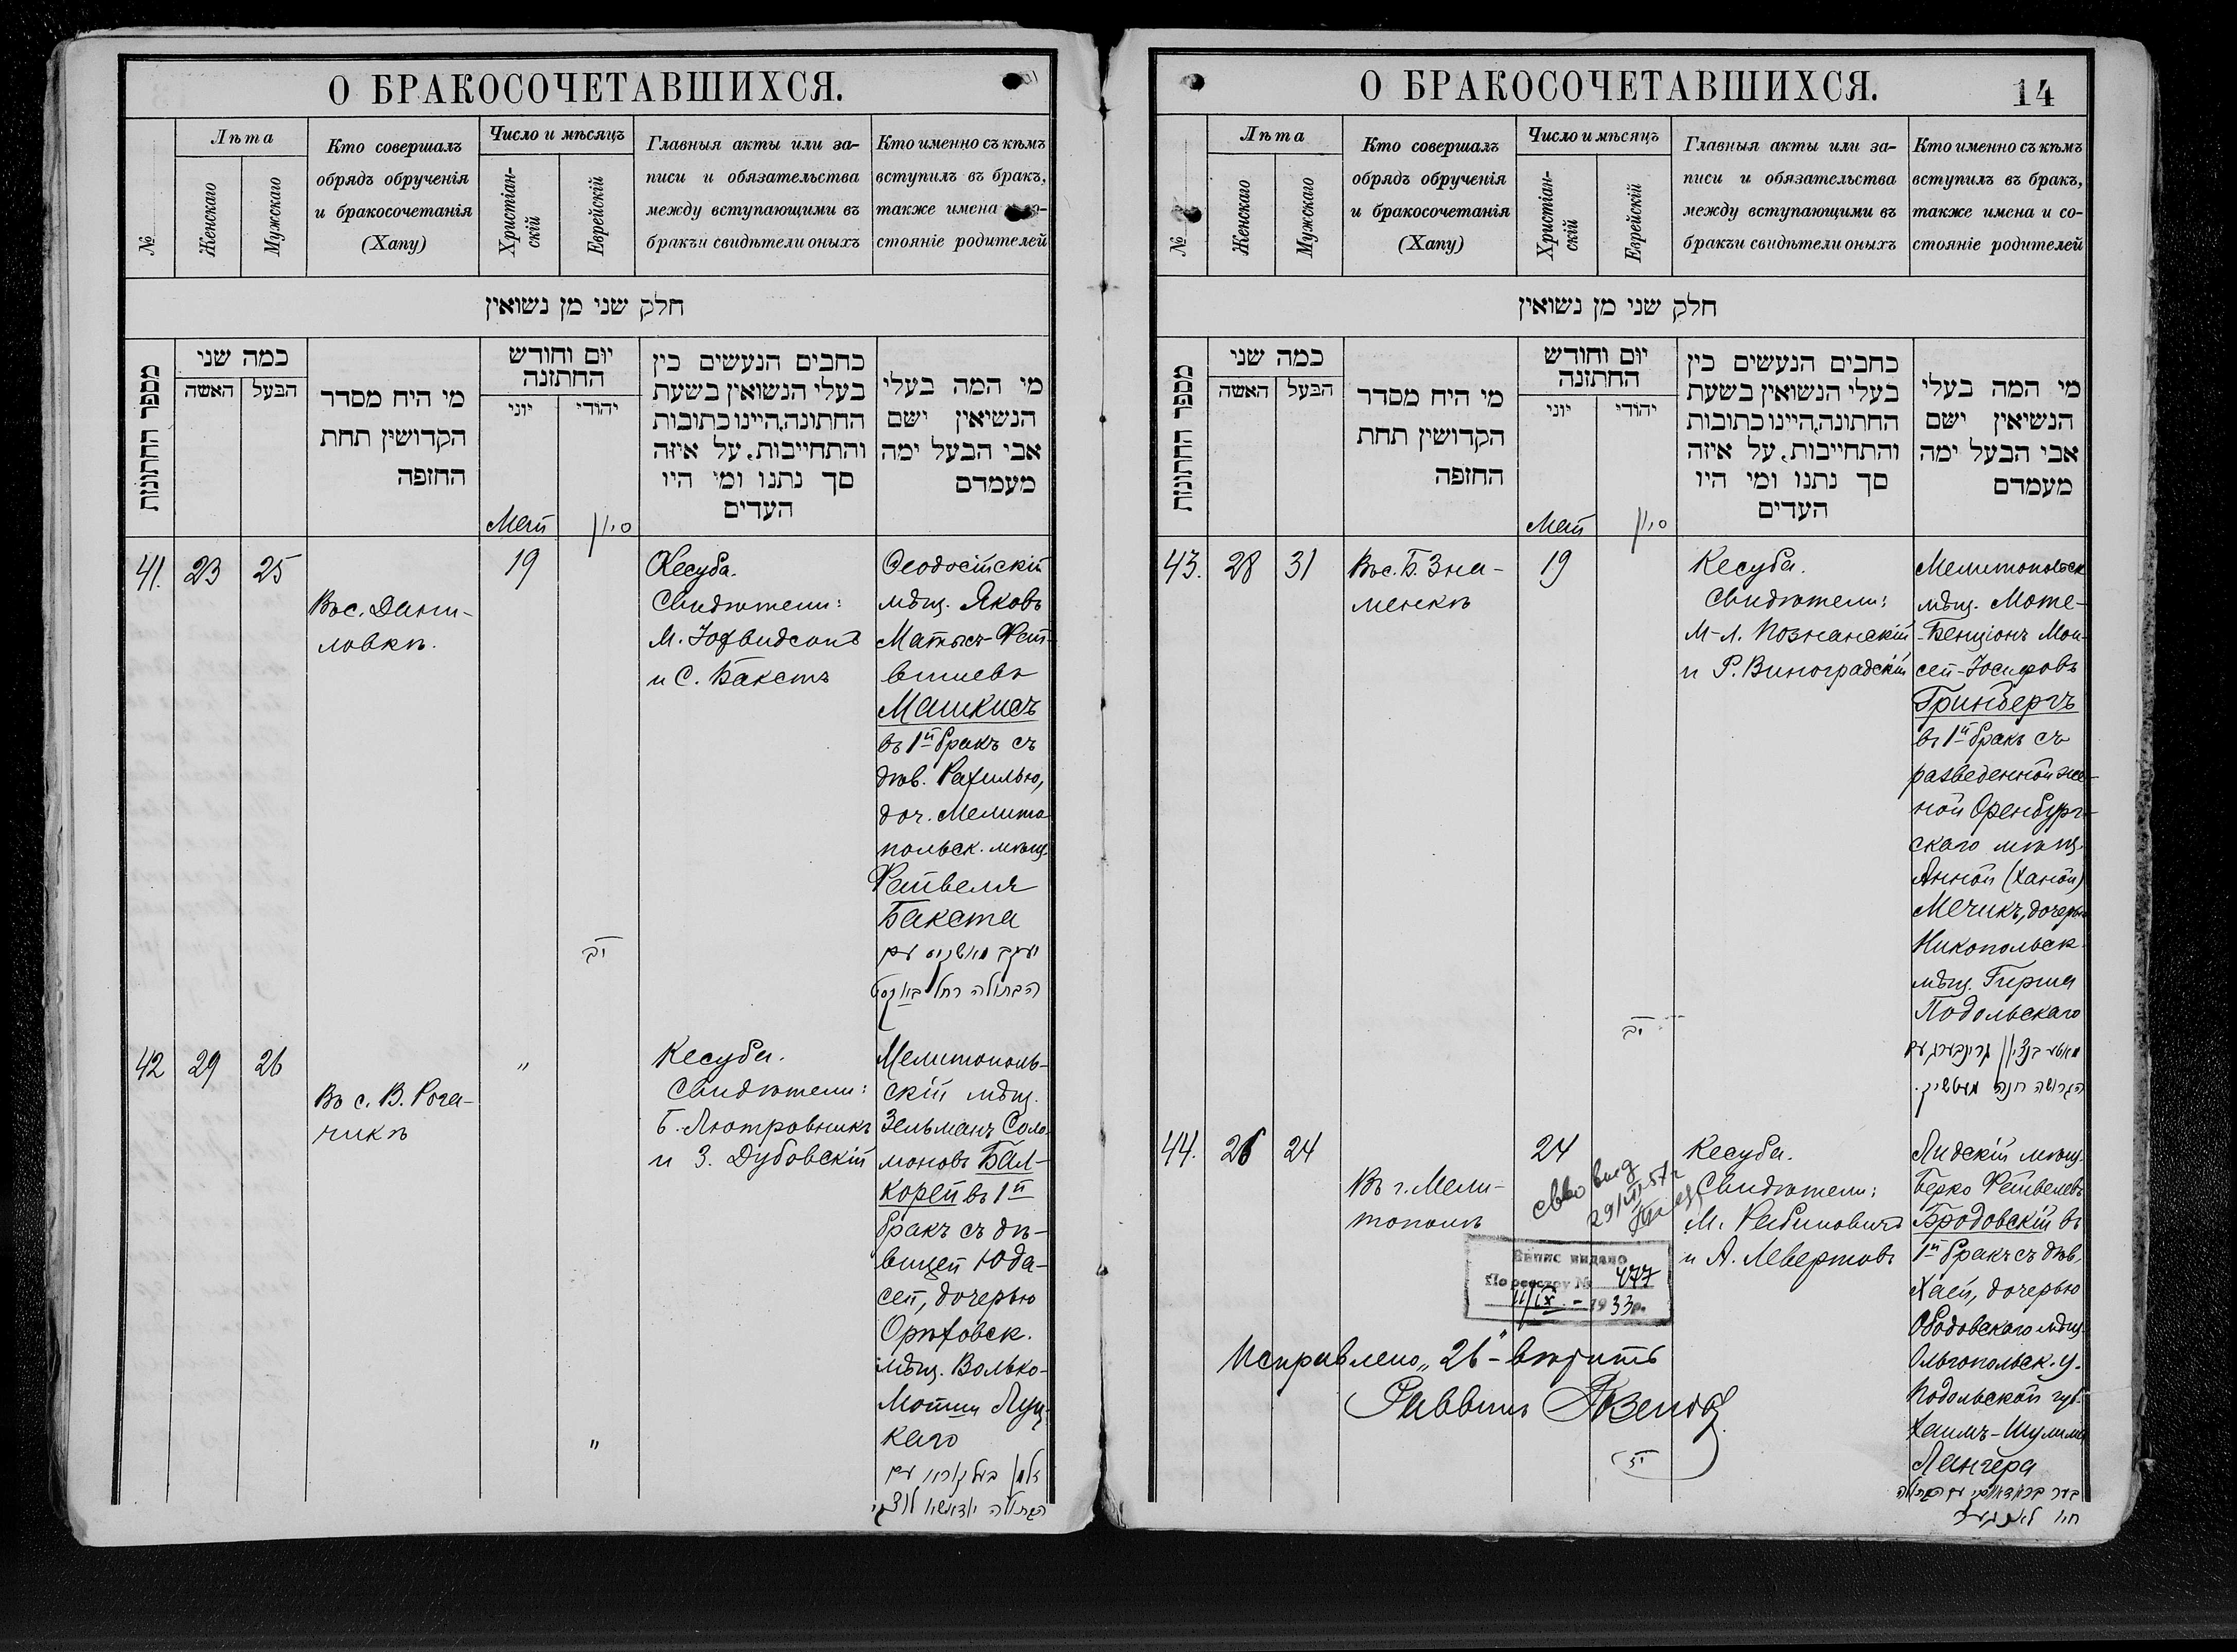 О БРАКОСОЧЕТАВШИХСЯ.
№
Лѣта
Женскаго
Мужскаго
Кто совершалъ
обрядъ обрученія
и бракосочетанія
(Хапу)
Число и мѣсяцъ
Христіан-
скій
Еврейскій
Главныя акты или за-
писи и обязательства
между вступающими въ
бракъ и свидѣтели оныхъ
Кто именно съ кѣмъ
вступилъ въ бракъ,
также имена
стояніе родителей
חלק שני מן נשואין
מספר החתונות
כמה שני
האשה
הבעל
מי היח מסדר
הקדושין תחת
החזפה
יום וחודש
החתזנה
יוני
יהודי
כחבים הנעשים כין
בעלי הנשואין בשעת
החתונה, היינו כתובות
והתחייבות, על איזה
סך נתנו ומי היו
העדים
מי המה בעלי
הנשיאין ישם
אבי הבעל ימה
מעמדם
Май
סיון
41.
23
25
Въ с. Дани-
ловкѣ.
19
Кесуба.
Свидѣтели:
М. Іофвидсонъ
и С. Бакстъ
Ѳеодосійскій
мѣщ. Яковъ
Матысъ-Фей-
вишевъ
Машкисъ
въ 1й бракъ съ
дѣв. Рахилью,
доч. Мелито
польск. мѣщ.
Файвеля
Бакста
יב
יעקב מאשקיס עם
הבתולה רחל באקסט
42
29
26
Въ с. В. Рога-
чикѣ
"
Кесуба.
Свидѣтели:
Б. Лютровникъ
и З. Дубовскій
Мелитополь-
скій мѣщ.
Зельманъ Соло
моновъ Бал-
корей въ 1й
бракъ съ дѣ-
вицей Юда-
сей, дочерью
Орѣховск.
мѣщ. Волько-
Мотши Луц-
каго
"
זלמן בעלקאריי עם
הבתולה יודאשיא לוצקי
О БРАКОСОЧЕТАВШИХСЯ.
14
№
Лѣта
Женскаго
Мужскаго
Кто совершалъ
обрядъ обрученія
и бракосочетанія
(Хапу)
Число и мѣсяцъ
Христіан-
скій
Еврейскій
Главныя акты или за-
писи и обязательства
между вступающими въ
бракъ и свидѣтели оныхъ
Кто именно съ кѣмъ
вступилъ въ бракъ,
также имена и со-
стояніе родителей
חלק שני מן נשואין
מספר החתונות
כמה שני
האשה
הבעל
מי היח מסדר
הקדושין תחת
החזפה
יום וחודש
החתזנה
יוני
יהודי
כחבים הנעשים כין
בעלי הנשואין בשעת
החתונה, היינו כתובות
והתחייבות, על איזה
סך נתנו ומי היו
העדים
מי המה בעלי
הנשיאין ישם
אבי הבעל ימה
מעמדם
Май
סיון
43.
28
31
Въ с. Б. Зна-
менкѣ
19
Кесуба.
Свидѣтели:
М-Л. Познанскій
и Р. Виноградскій
Мелитопольск
мѣщ. Моте-
-Бенціонъ Мои-
сей-Іосифовъ
Гринбергъ
въ 1й бракъ съ
разведенной же-
ной Оренбург-
скаго мѣщ.
Анной (Ханой)
Мечикъ, дочерью
Никопольск.
мѣщ. Гирша
Подольскаго
יב
מאטע בנציון גרינבערג עם
הגרושה חנה מעטשיק.
44.
26
24
Въ г. Мели-
тополѣ
24
Кесуба.
Свидѣтели:
М. Рабиновичъ
и А. Левертовъ
Лидскій мѣщ.
Берко Файвелевъ
Бродовскій въ
1й бракъ съ дѣв.
Хаей, дочерью
Ободовскаго мѣщ.
Ольгопольск. у.
Подольской губ.
Хаимъ-Шулима
Лангера
29/VII-57 г
Випис видано
По реєстру № 477
11/IX - 1933 р.
Исправлено „26"-вѣрить
Раввинъ
יז
בער בראדאווסקי עם הבתולה
חיה לאנגער